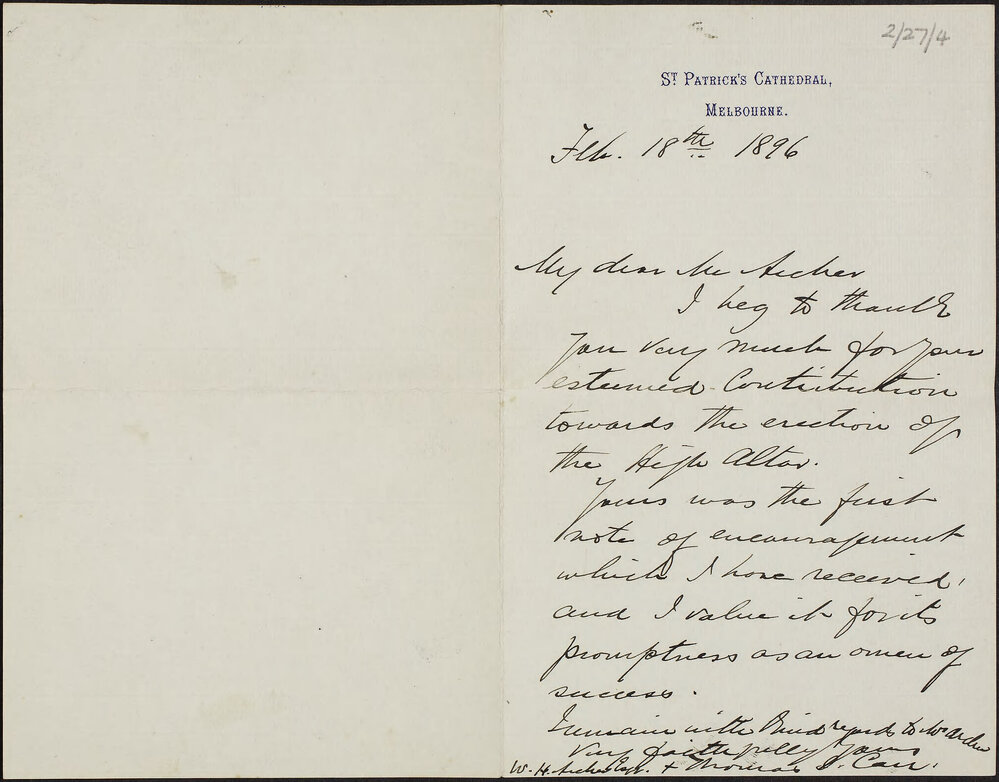 2/27/4
ST PATRICK'S CATHEDRAL,
MELBOURNE.
Feb. 18th 1896
My dear Mr Archer
I beg to thank
you very much for your
esteemed Contribution
towards the erection of
the High Altar.
Yours was the first
note of encouragement
which I have received,
and I value it for its
promptness as an omen of
success.
I remain with kind regards to Mrs Archer
Very faithfully Yours
W. H. Archer Esqr. + Thomas J. Carr.